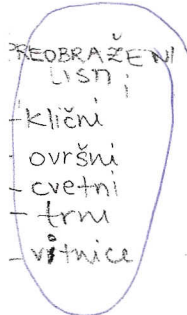 PREOBRAŽENI
LISTI
- klični
- ovršni
- cvetni
- trni
- vitnice